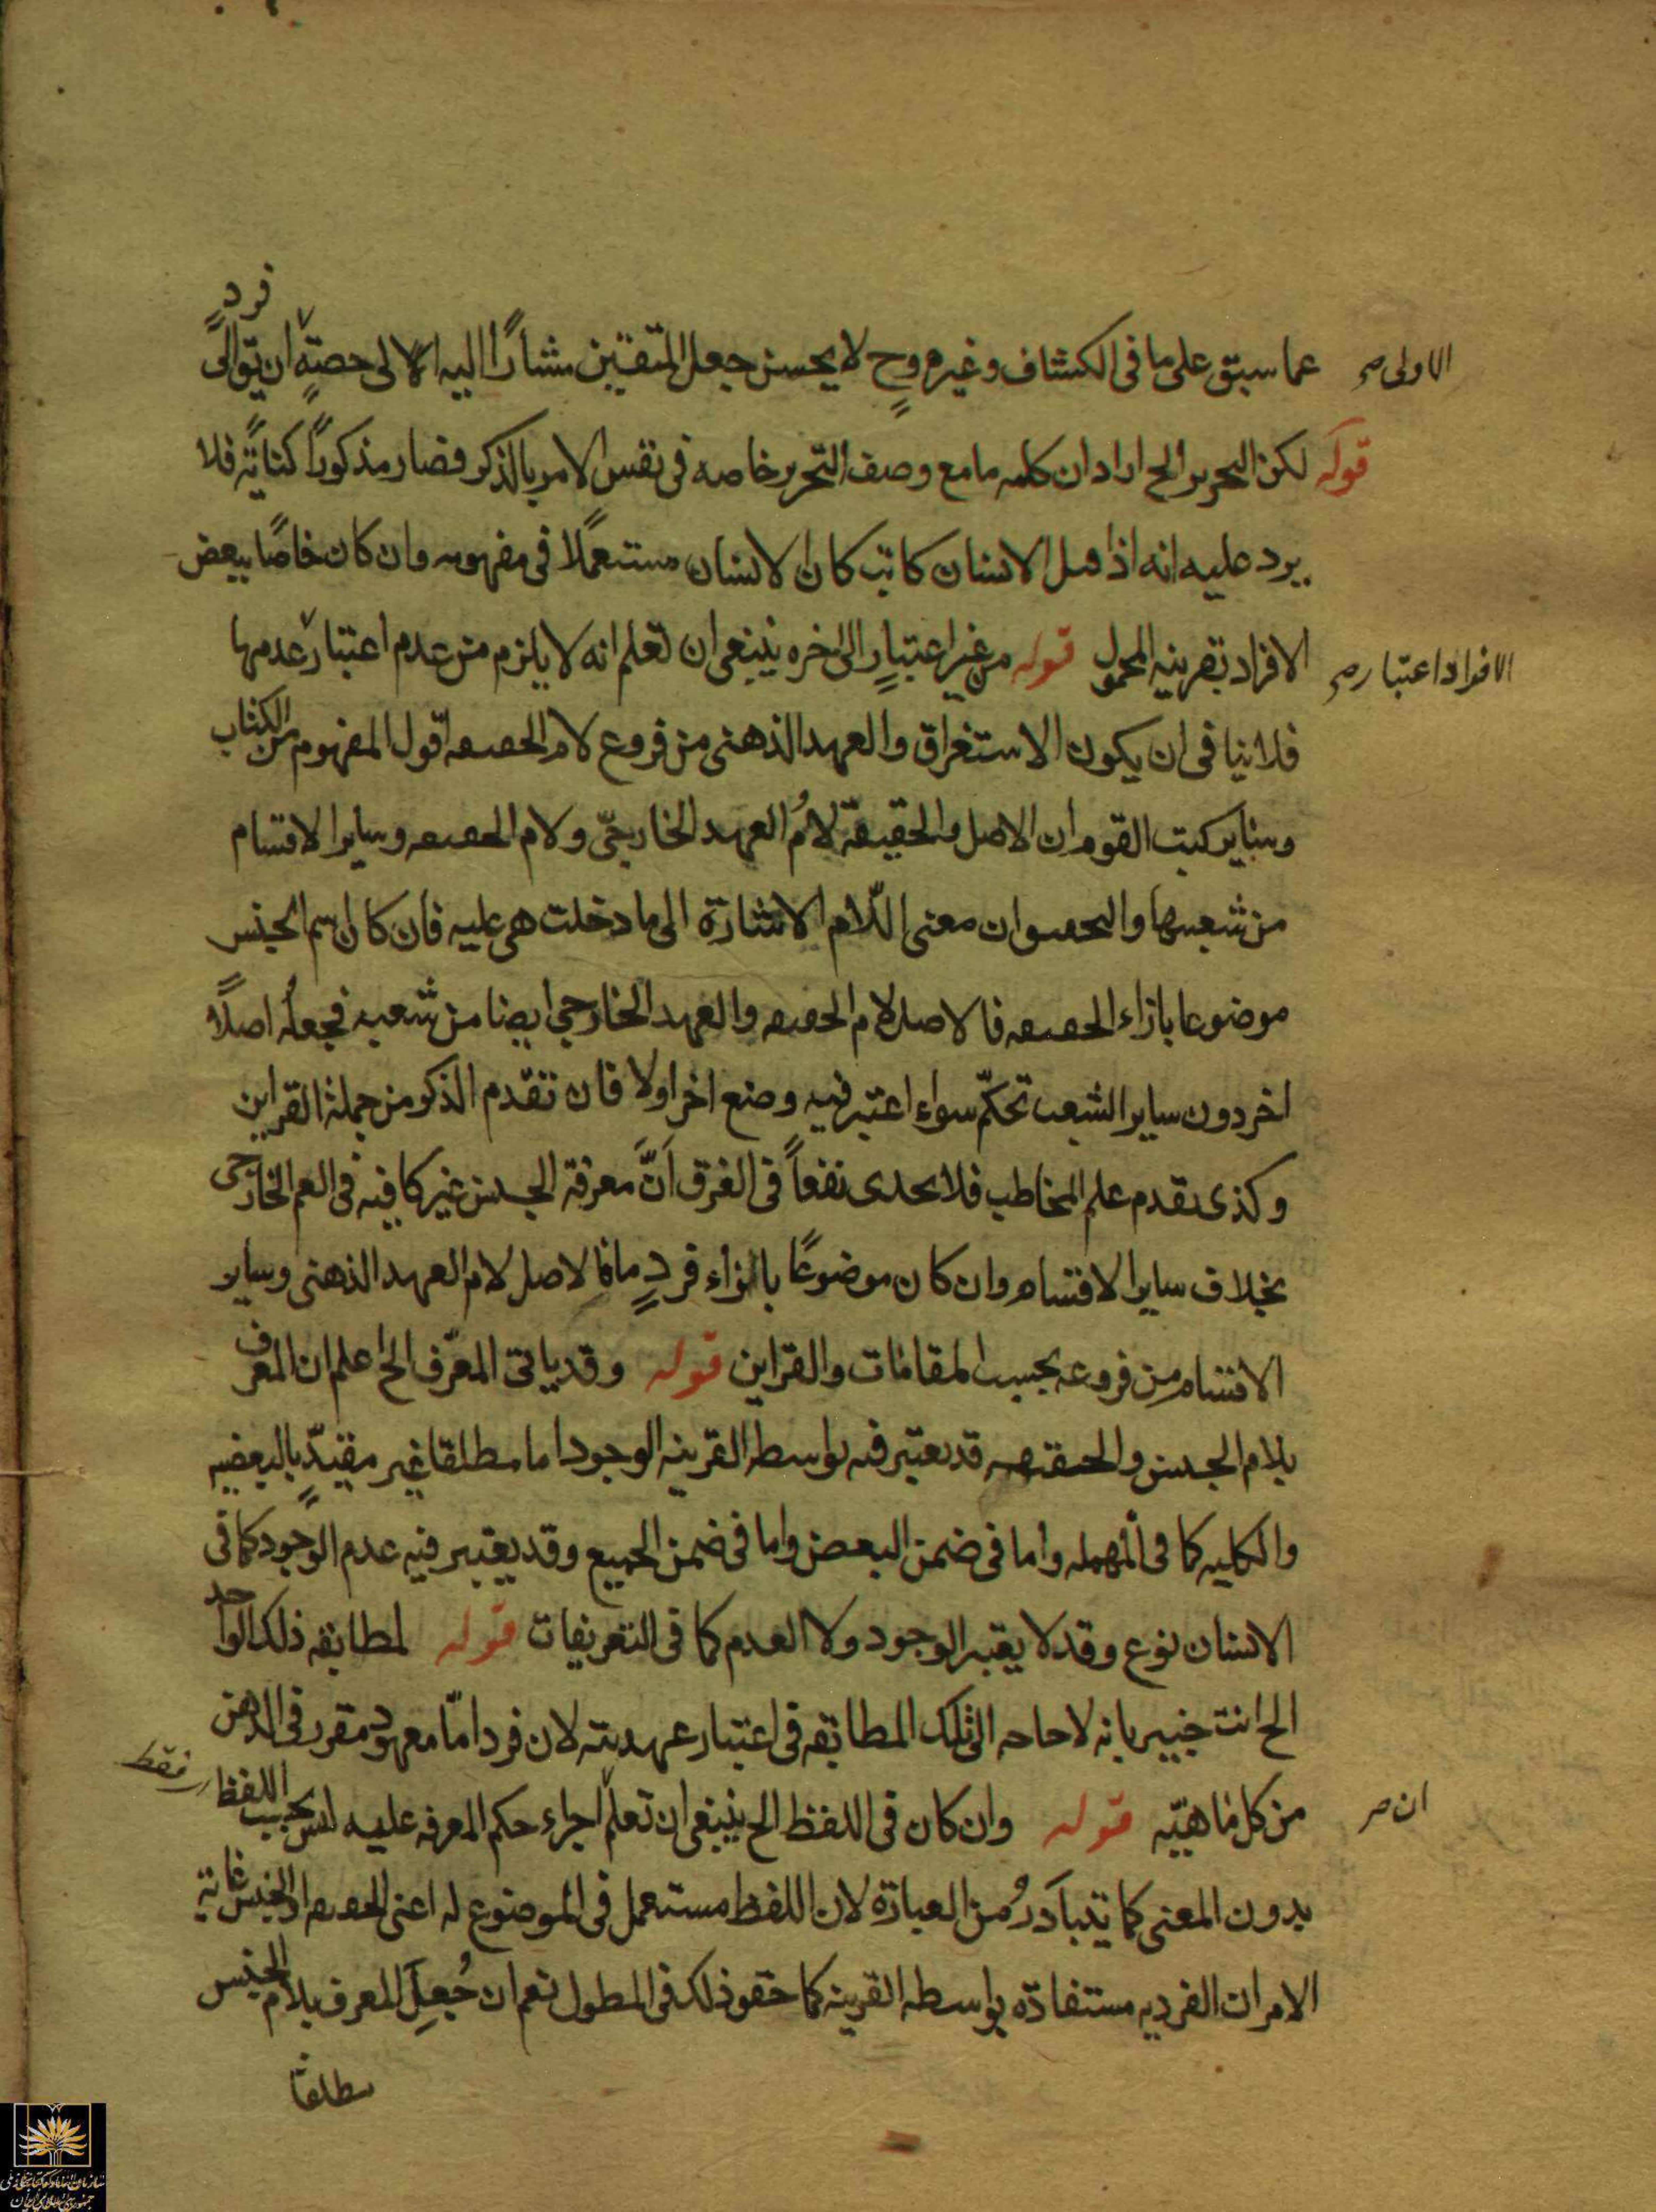 فرد
عما سبق على ما فى الكشاف وغيره وح لا يحسن جعل المتقين مشارًا اليه الا لى حصةٍ ان يق الى
الاولى صح
قوله لكن التحرير الخ اراد ان كلمه ما مع وصف التحرير خاصه فى نفس الامر بالذكر فصار مذكورًا كنايةً فلا
يرد عليه انه اذا قيل الانسان كاتب كان الانسان مستعملًا فى مفهومه وان كان خاصًا ببعض
الافراد بقرينه المحمول قوله من غير اعتبارٍ الى اخره ينبغى ان تعلم انه لا يلزم من عدم اعتبار عدمها
الافراد اعتبار صح
فلا ينافى ان يكون الاستغراق والعهد الذهنى من فروع لام الحقيقه اقول المفهوم من الكتاب
وساير كتب القوم ان الاصل والحقيقة لامُ العهد الخارجىّ ولام الحقيقه وساير الاقسام
من شعبها والتحقيق ان معنى اللّام الاشارة الى ما دخلت هى عليه فان كان اسم الجنس
موضوعا بازاء الحقيقه فالاصل لام الحقيقه والعهد الخارجى ايضا من شعبه فجعلُه اصلًا
اخر دون ساير الشعب تحكّم سواء اعتبر فيه وضع اخر اولا فان تقدم الذكر من جملة القراين
وكذى تقدم علم المخاطب فلا يجدى نفعاً فى الفرق انَّ معرفة الجنس غير كافية فى العم الخارجى
بخلاف ساير الاقسام وان كان موضوعًا بالزاء فردٍ ما فالاصل لام العهد الذهنى وساير
الاقسام من فروعه بحسب المقامات والقراين قوله وقد ياتى المعرّف الخ اعلم ان المعرف
بلام الجنس والحقيقه قد يعتبر فيه بواسطه القرينه الوجود اما مطلقا غير مقيّدٍ بالبعضيه
والكليه كما فى المهمله واما فى ضمن البعض واما فى ضمن الجميع وقد يعتبر فيه عدم الوجود كما فى
الانسان نوع وقد لا يعتبر الوجود ولا العدم كما فى التعريفات قوله لمطابقه ذلك الواحد
الخ انت خبير بانه لا حاجه الى تلك المطابقه فى اعتبار عهديته لان فردا مّا معهود مقرر فى الذهن
من كل ماهيّه قوله وان كان فى اللفظ الخ ينبغى ان تعلم اجراء حكم المعرفه عليه ليس بحسب اللفظ
فقط
ان صح
بدون المعنى كما يتبادرُ من العبارة لان اللفظ مستعمل فى الموضوع له اعنى الحقيقه او الجنس غاية
الامر ان الفرديه مستفادة بواسطه القرينه كما حقق ذلك فى المطول نعم ان جُعِلَ المعرف بلام الجنس
مطلقا